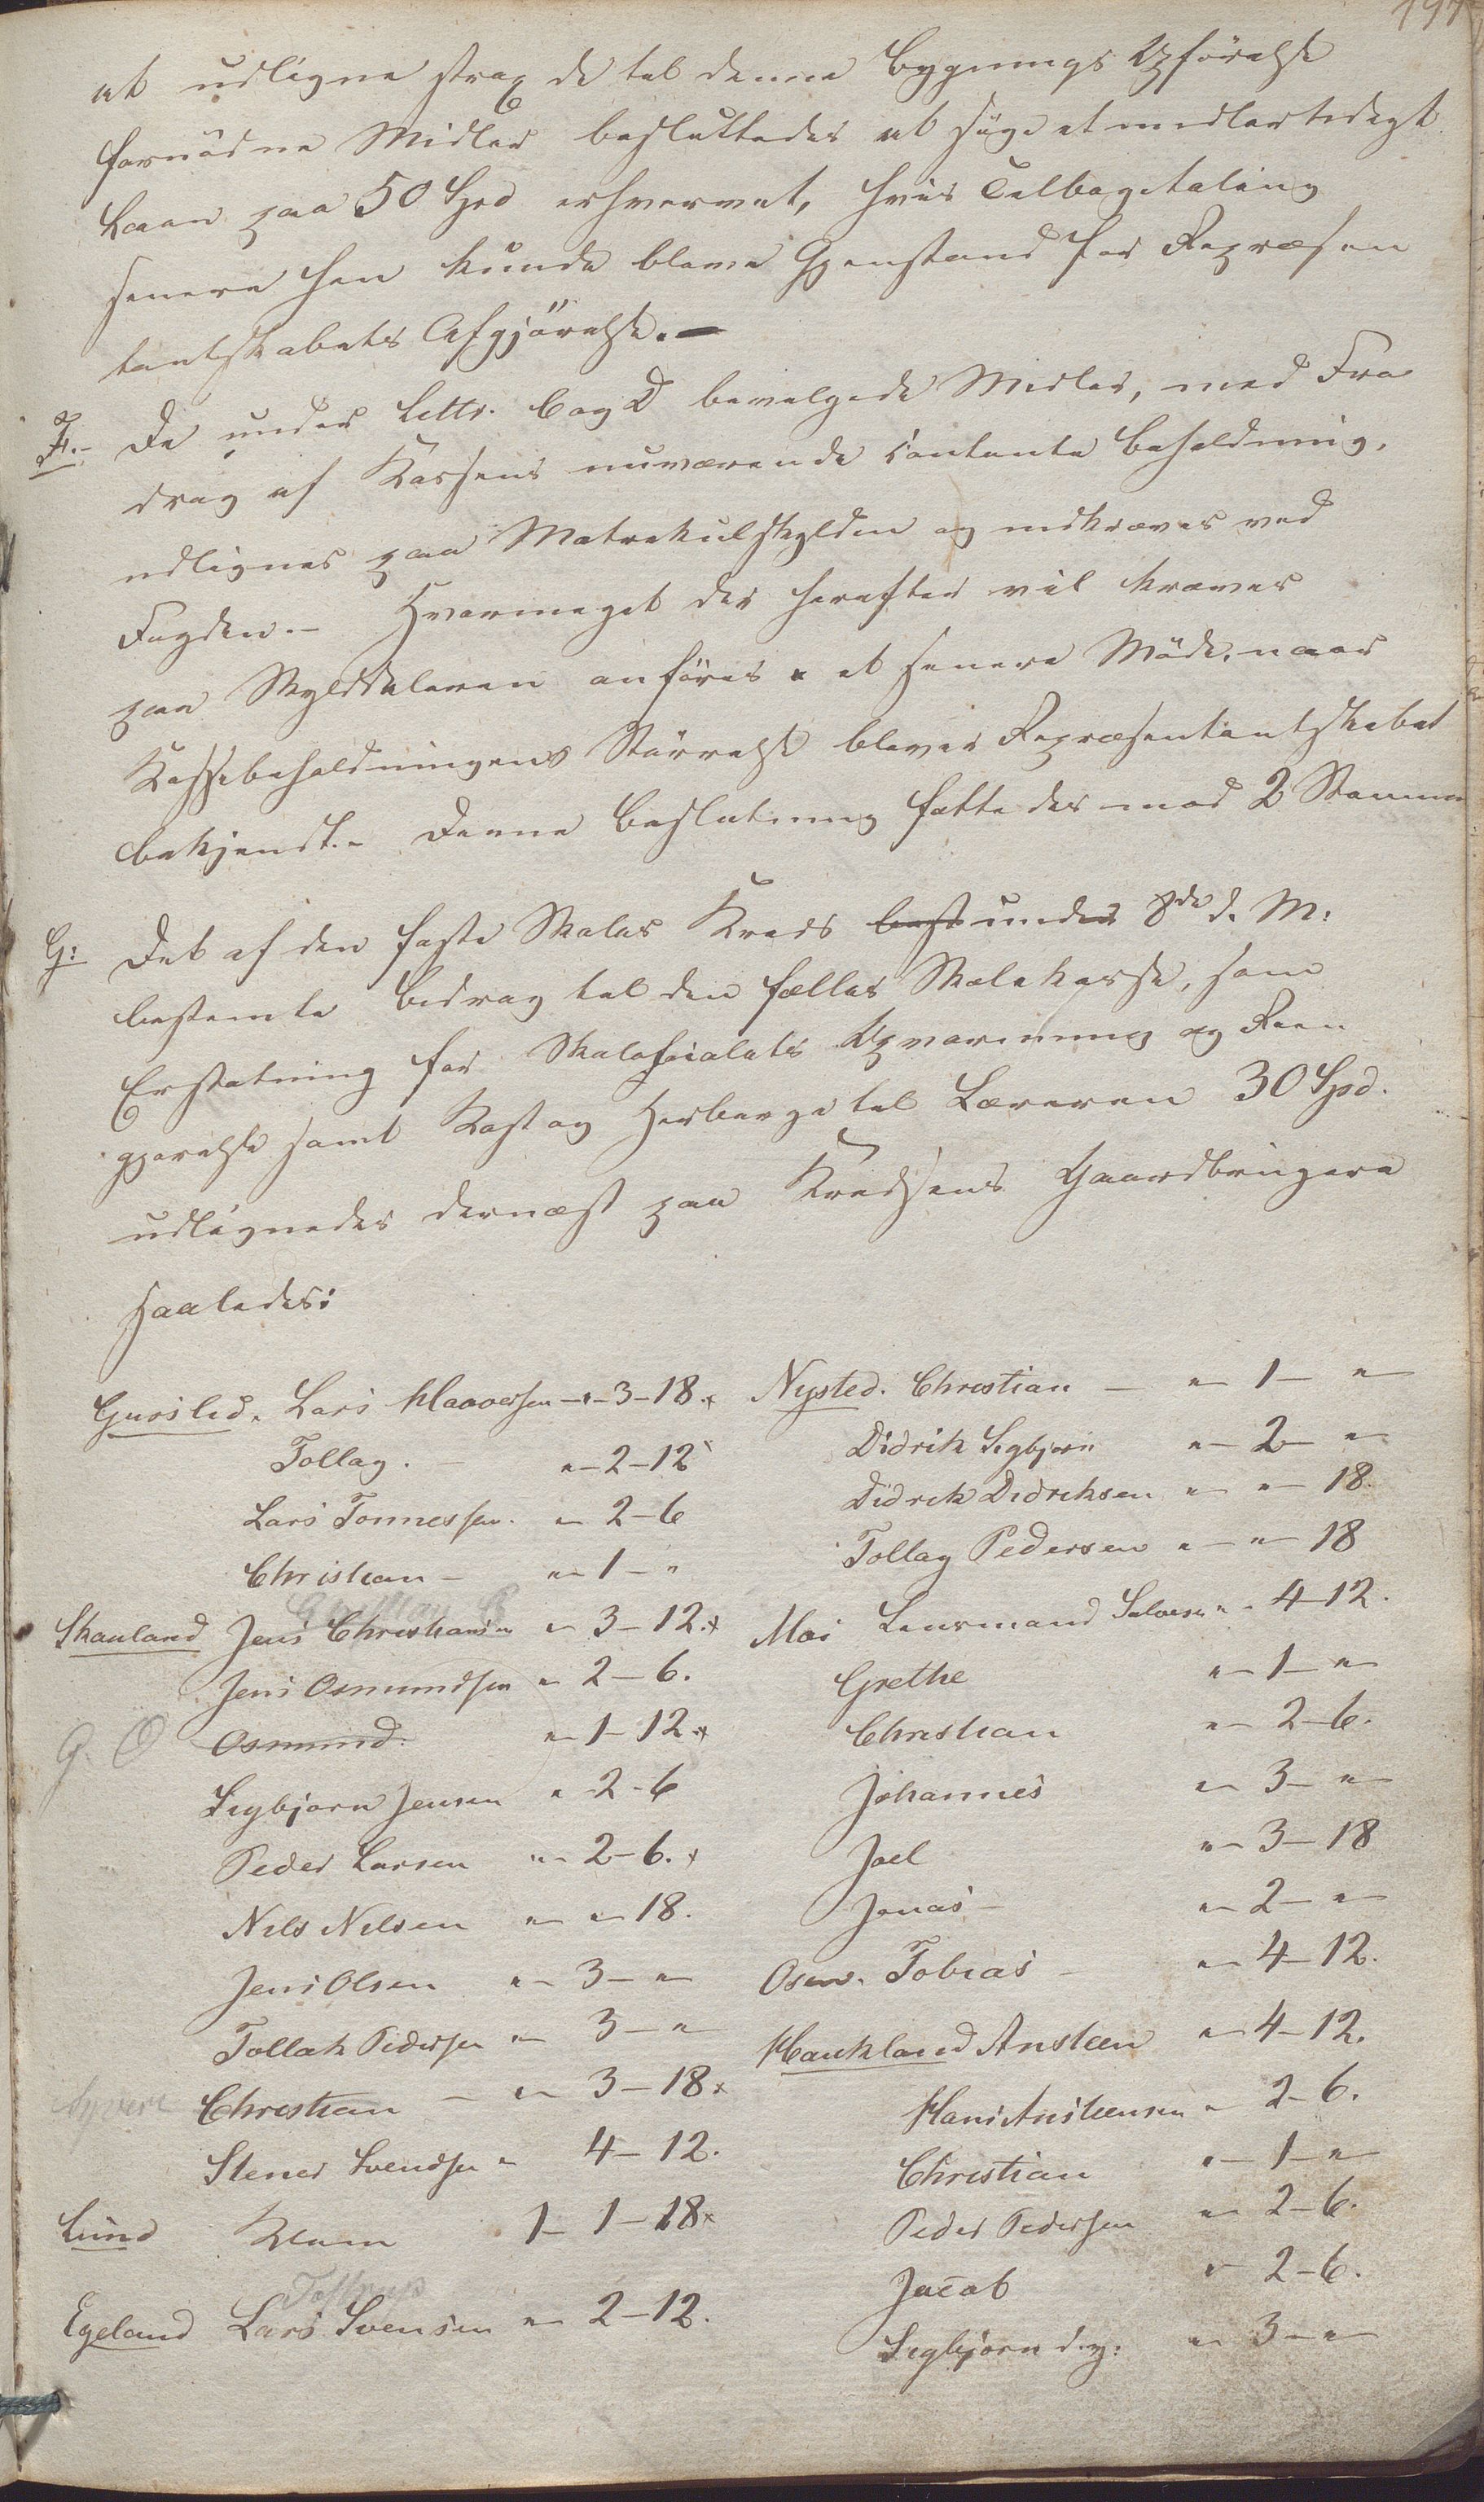 197
at udligne strax de til denne Bygnings Opförelse
fornödne Midler besluttedes at söge et midlertidigt
Laan paa 50 Spd erhvervet, hvis Tilbagetaling
senere hen kunde blive Gjenstand for Repræsen
tantskabets Afgjörelse. —
F. - De under Littr. C og D bevilgede Midler, med Fra
drag af Kassens nuværende contante Beholdning,
udlignes paa Matrikulskylden og indkræves ved
Fogden. - Hvormeget der herefter vil kræves
paa Skylddaleren anföres i et senere Möde, naar
Kassebeholdningens Störrelse bliver Repræsentantskabet
bekjendt. - Denne Beslutning fattedes mod 2 Stemmer
G: Det af den faste Skoles Kreds best under 8de d. M:
bestemte Bidrag til den fælles Skolekasse, som
Erstatning for Skolelocalets Opvarmning og Reen
gjörelse samt Kost og Herberge til Læreren 30 Spd.
udlignedes dernæst paa Kredsens Gaardbrugere
saaledes:
Gursled. Lars Haaversen - " - 3 - 18. x Nysted. Christian - " - 1 - "
Tollag. - " - 2 - 12 Didrik Sigbjörn " - 2 - "
Lars Tonnessen. " - 2 - 6 Didrik Didriksen " - " - 18.
Christian - " - 1 - " Tollag Pedersen " - " - 18
Skauland Jens Christiansen " - 3 - 12. x Moi Lensmand Salvesen " - 4 - 12.
Jens Osmundsen " - 2 - 6. Grethe " - 1 - "
G. O Osmund. " - 1 - 12. x Christian " - 2 - 6.
Sigbjörn Jensen " - 2 - 6 Johannes " - 3 - "
Peder Larsen " - 2 - 6. x Joel " - 3 - 18
Nils Nilsen " - " - 18. Jonas - " - 2 - "
Jens Olsen " - 3 - " Osen. Tobias - " - 4 - 12.
Tollak Pedersen " - 3 - " Haukland Ansteen " - 4 - 12.
Christian - " - 3 - 18 x Hans Ansteensen " - 2 - 6.
Stener Svendsen " 4 - 12. Christian " - 1 - "
Lund Klem 1 - 1 - 18 x Peder Pedersen " - 2 - 6.
Jacob " - 2 - 6.
Egeland Lars Svensen " - 2 - 12. Sigbjörn d. y: " - 3 - "